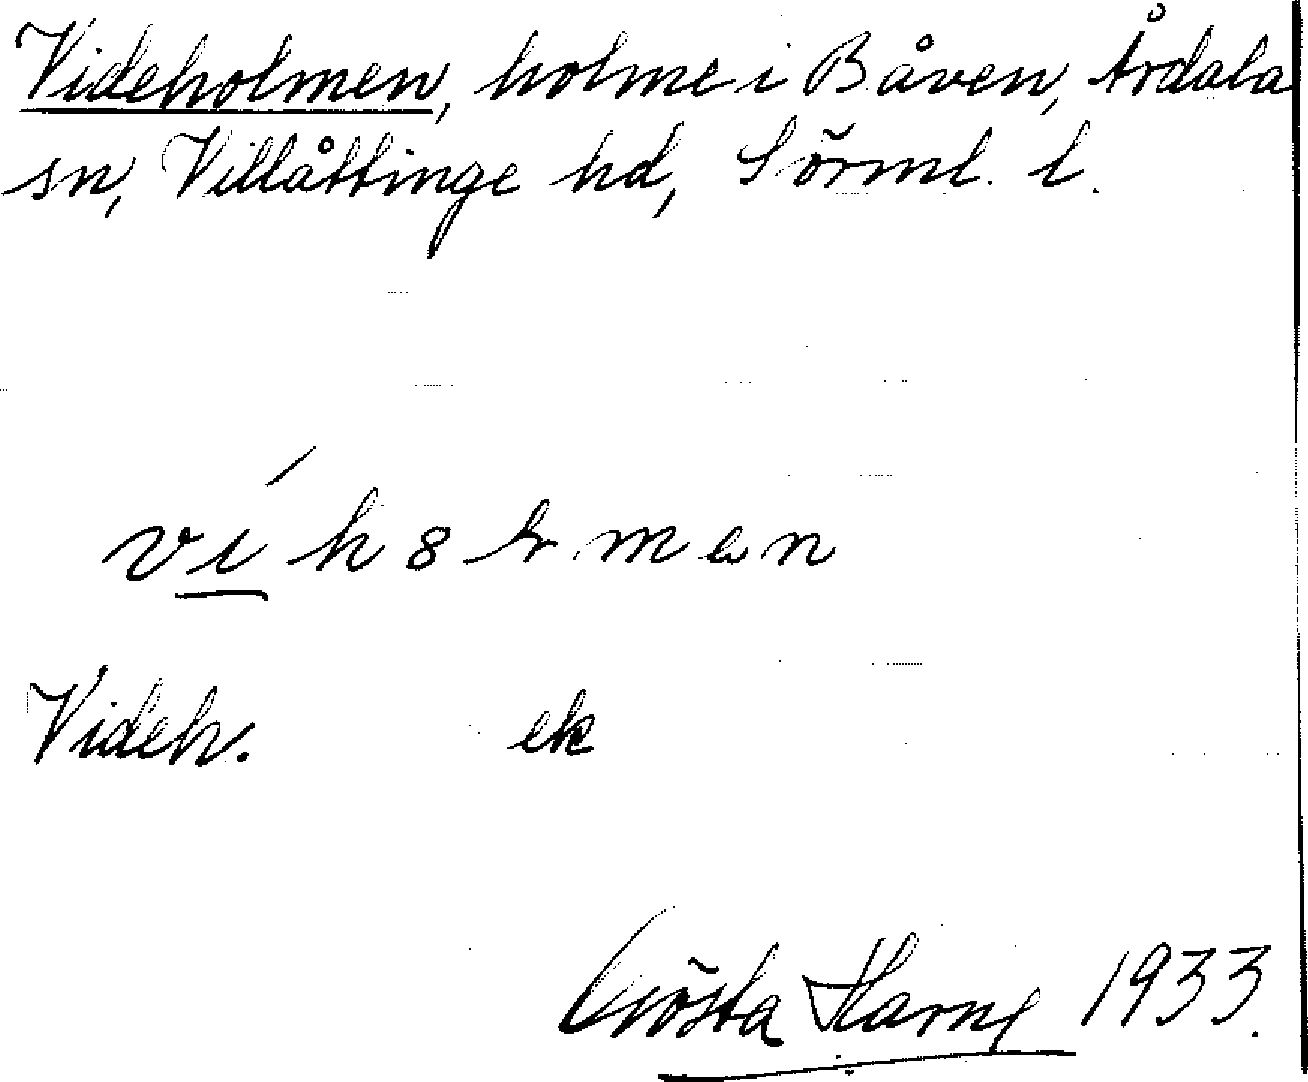 Videholmen, holme i Båven, Årdala
sn, Villåttinge hd, Sörml. l.
Videh. ek
Gösta 1933.